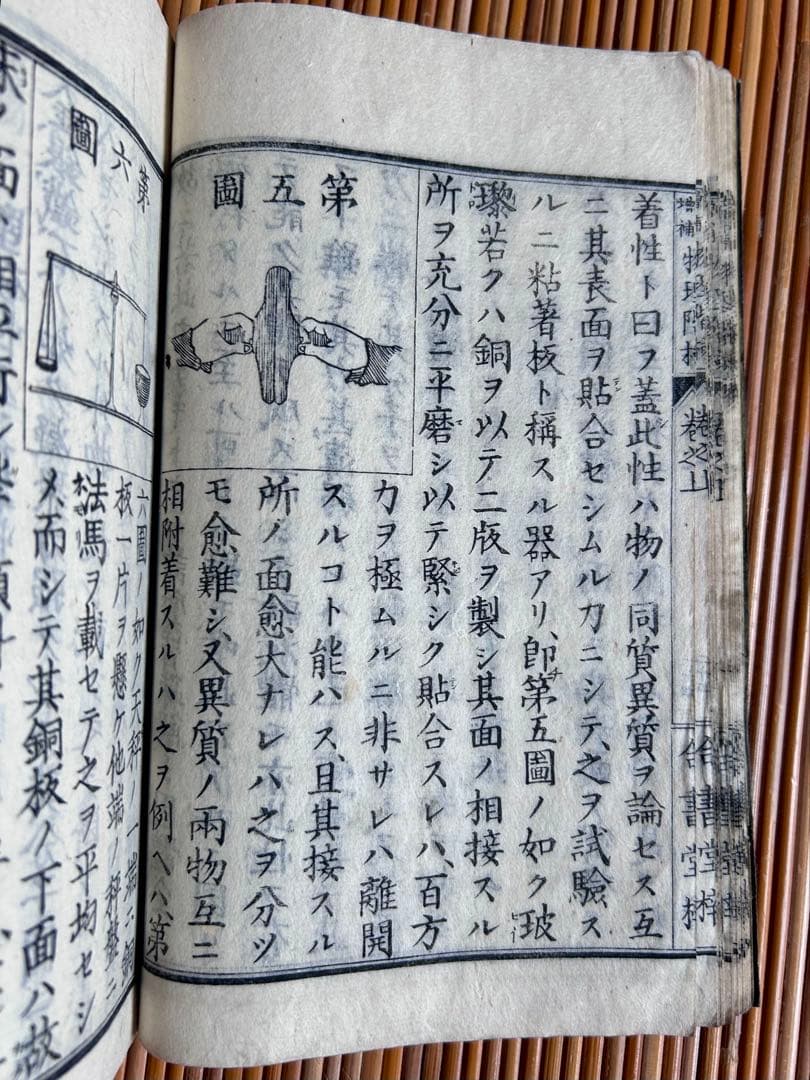 増補物理階梯
巻之上
着性ト曰フ蓋此性ハ物ノ同質異質ヲ論セス互
ニ其表面ヲ貼合セシムル力ニシテ、之ヲ試驗ス
ルニ粘著板ト稱スル器アリ、即第五圖ノ如ク玻
瓈若クハ銅ヲ以テ二版ヲ製シ其面ノ相接スル
所ヲ充分ニ平磨シ以テ緊シク貼合スレハ、百方
力ヲ極ムルニ非サレハ離開
スルコト能ハス、且其接スル
所ノ面愈大ナレハ之ヲ分ツ
モ愈難シ、又異質ノ兩物互ニ
相附着スルハ之ヲ例ヘハ、第
第五圖
六圖ノ如ク天秤ノ一端ニ銅
板一片ヲ懸ケ他端ノ秤盤ニ
法馬ヲ載セテ之ヲ平均セシ
メ、而シテ其銅板ノ下面ハ故
ノ面ハ相平行シ
第六圖